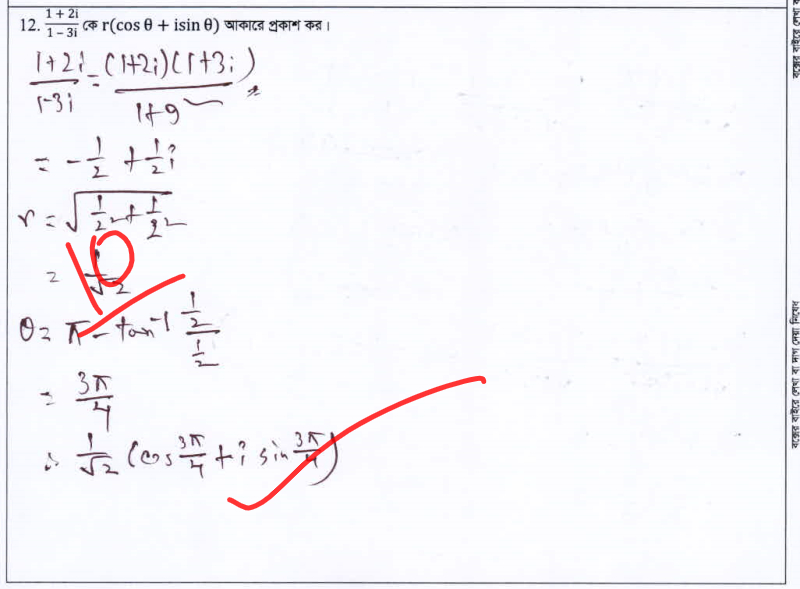 12. (1 + 2i)/(1 - 3i) কে r(cos θ + isin θ) আকারে প্রকাশ কর।
(1+2i)/(1-3i) = ((1+2i)(1+3i))/(1+9)
= -1/2 + 1/2 i
r = √(1/2² + 1/2²)
= 1/√2
θ = π - tan⁻¹ (1/2)/(1/2)
= 3π/4
∴ 1/√2 (cos 3π/4 + i sin 3π/4)
10
বক্সের বাইরে লেখা বা দাগ দেয়া নিষেধ
বক্সের বাইরে লেখা ব